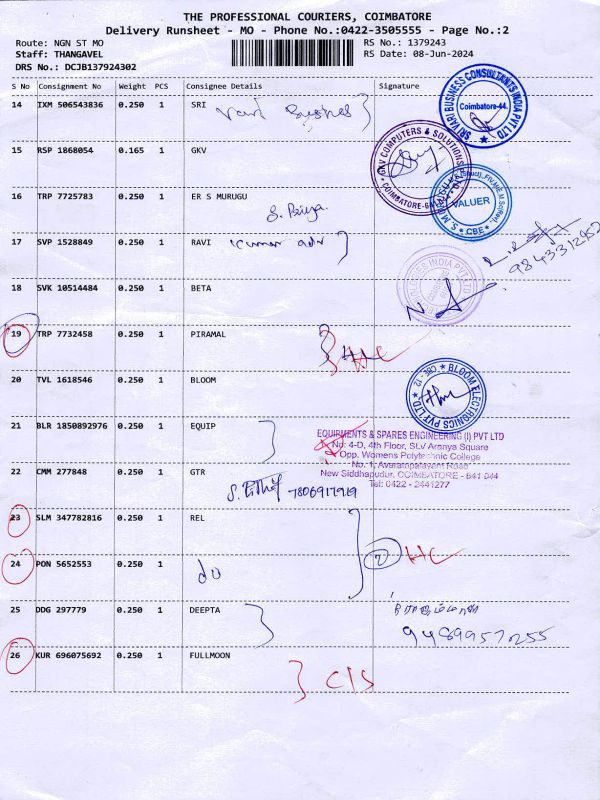 THE PROFESSIONAL COURIERS, COIMBATORE
Delivery Runsheet - MO - Phone No.:0422-3505555 - Page No.:2
Route: NGN ST MO RS No.: 1379243
Staff: THANGAVEL RS Date: 08-Jun-2024
DRS No.: DCJB137924302
S No Consignment No Weight PCS Consignee Details Signature
14 IXM 506543836 0.250 1 SRI
SRI VARI BUSINESS CONSULTANTS INDIA PVT LTD
Coimbatore-44.
15 RSP 1868054 0.165 1 GKV
GKV COMPUTERS & SOLUTIONS
COIMBATORE-
16 TRP 7725783 0.250 1 ER S MURUGU
S. Priya
VALUER
CBE
17 SVP 1528849 0.250 1 RAVI Kumar adv
9843312952
18 SVK 10514484 0.250 1 BETA
INDIA PVT LTD
19 TRP 7732458 0.250 1 PIRAMAL
20 TVL 1618546 0.250 1 BLOOM
BLOOM ELECTRONICS PVT LTD
CBE - 12
21 BLR 1850892976 0.250 1 EQUIP
EQUIPMENTS & SPARES ENGINEERING (I) PVT LTD
No: 4-D, 4th Floor, SLV Aranya Square
Opp. Womens Polytechnic College
No. 1, Avarampalayam Road
New Siddhapudur, COIMBATORE - 641 044
Tel: 0422 - 2441277
22 CMM 277848 0.250 1 GTR
7806917919
23 SLM 347782816 0.250 1 REL
24 PON 5652553 0.250 1 do
2
25 DDG 297779 0.250 1 DEEPTA
9489957255
26 KUR 696075692 0.250 1 FULLMOON
C/S